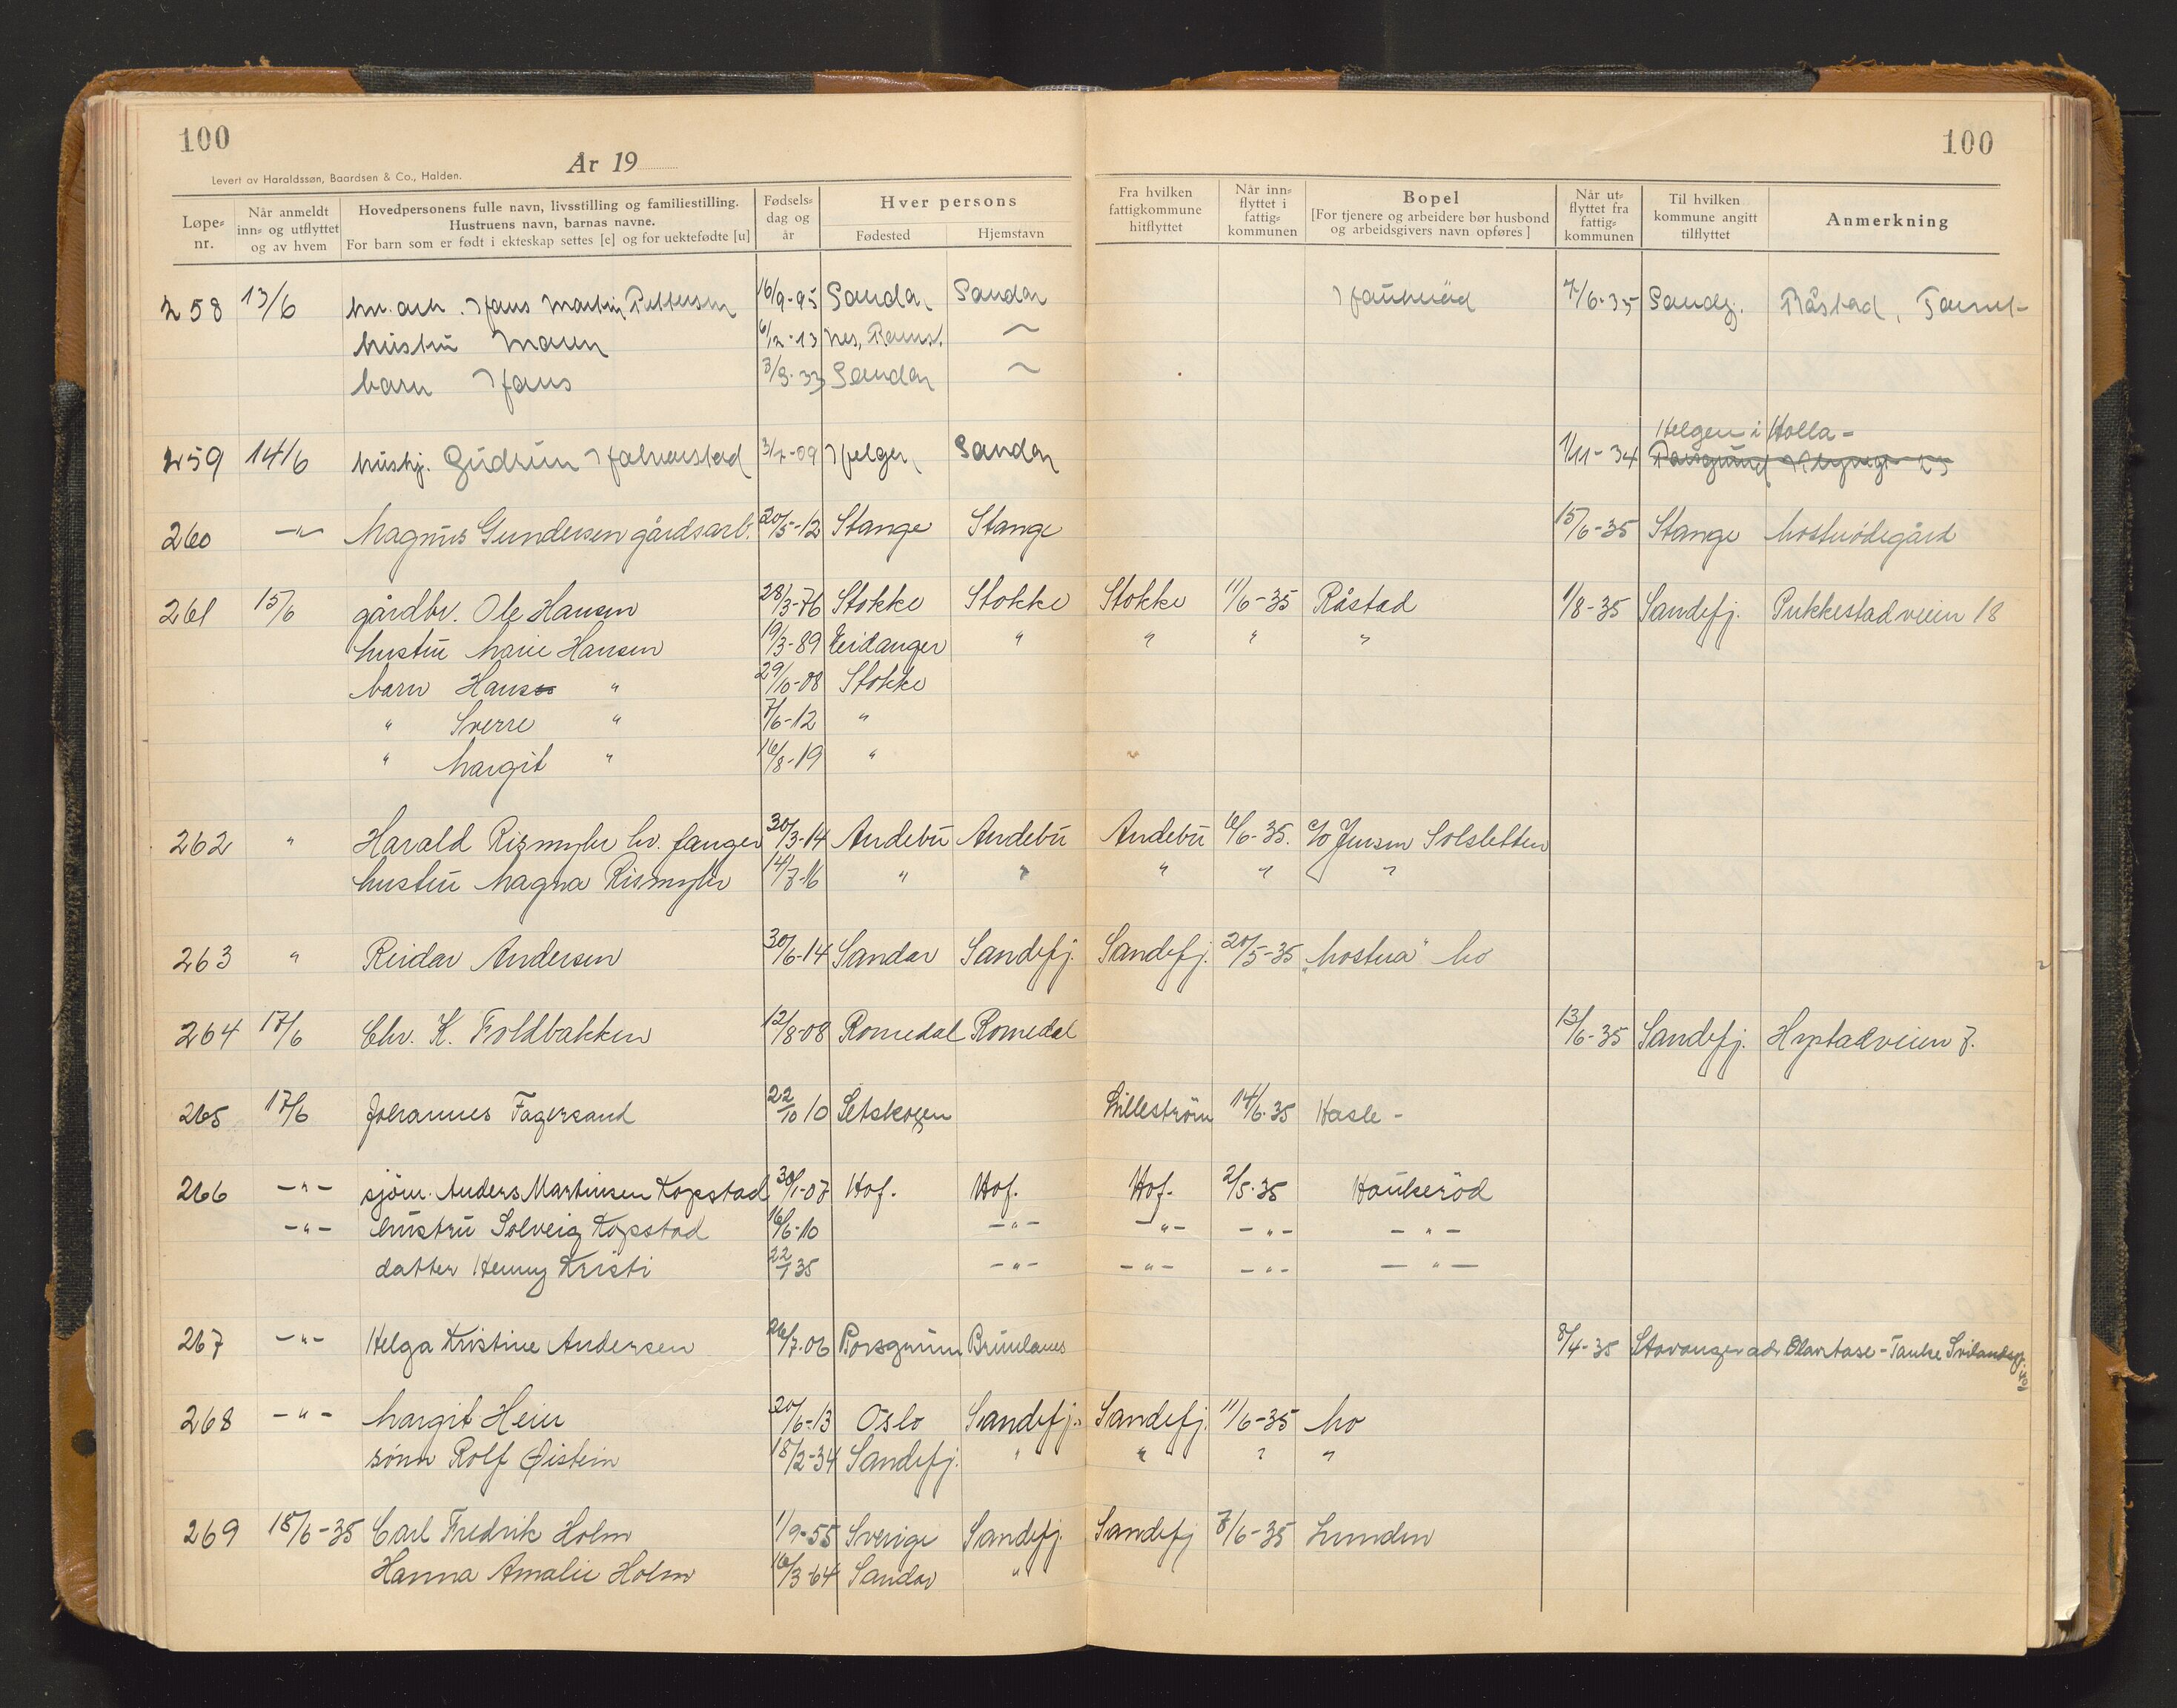 100
100
År 19
Levert av Haraldssøn, Baardsen & Co., Halden.
Løpe-nr. Når anmeldt inn- og utflyttet og av hvem Hovedpersonens fulle navn, livsstilling og familiestilling. Hustruens navn, barnas navne. For barn som er født i ekteskap settes [e] og for uektefødte [u] Fødsels-dag og år Hver persons Fødested Hjemstavn Fra hvilken fattigkommune hitflyttet Når inn-flyttet i fattig-kommunen Bopel [For tjenere og arbeidere bør husbond og arbeidsgivers navn opføres] Når ut-flyttet fra fattig-kommunen Til hvilken kommune angitt tilflyttet Anmerkning
258 13/6 hv. arb. Hans Martin Pettersen 16/9-95 Sandar Sandar Haukerød 7/6-35 Sandefj. Råstad,
hustru Maren 6/12-13 Nes, ~
barn Hans Sandar ~
Helgen i Holla -
259 14/6 hushj. Gudrun Halvorstad Helgen Sandar 1/11-34 Porsgrund
260 -"- Magnus Gundersen gårdsarb. 20/5-12 Stange Stange 15/6-35 Stange Mosterødegård
261 15/6 gårdbr. Ole Hansen 28/3-76 Stokke Stokke Stokke 11/6-35 Råstad 1/8-35 Sandefj. Pukkestadveien 18
hustru Marie Hansen 19/3-89 Eidanger " " " "
barn Hans " 29/10-08 Stokke
" Sverre " 7/6-12 "
" Margit " 16/8-19 "
262 " Harald Rismyhr hv. fanger 30/3-14 Andebu Andebu Andebu 6/6-35. c/o Jensen Solsletten
hustru Magna Rismyhr 14/7-16 " " " " "
263 " Reidar Andersen 30/6-14 Sandar Sandefj. Sandefj. 20/5-35 "Mostua" Mo
264 17/6 Chr. K. Foldbakken 12/8-08 Romedal Romedal 13/6-35 Sandefj. Hystadveien 7.
265 17/6 Johannes Fagersand 22/10 10 Setskogen Lilleström 14/6-35 Hasle -
266 -"- sjöm. Anders Martinsen Kopstad 30/1-07 Hof. Hof. Hof. 2/5-35 Haukeröd
-"- hustru Solveig Kopstad 16/6-10 -"- -"- -"- -"-
datter Henny Kristi 22/1 35 -"- -"- -"- -"-
267 -"- Helga Kristine Andersen 26/7-06 Porsgrunn Brunlanes 8/4-35 Stavanger adr
268 -"- Margit Heier 20/6-13 Oslo Sandefj. Sandefj. 11/6-35 Mo
sönn Rolf Øistein 18/2-34 Sandefj. " " " "
269 18/6-35 Carl Fredrik Holm 1/9-55 Sverige Sandefj. Sandefj 7/6-35 Lunden
Hanna Amalie Holm 16/3-64 Sandar "